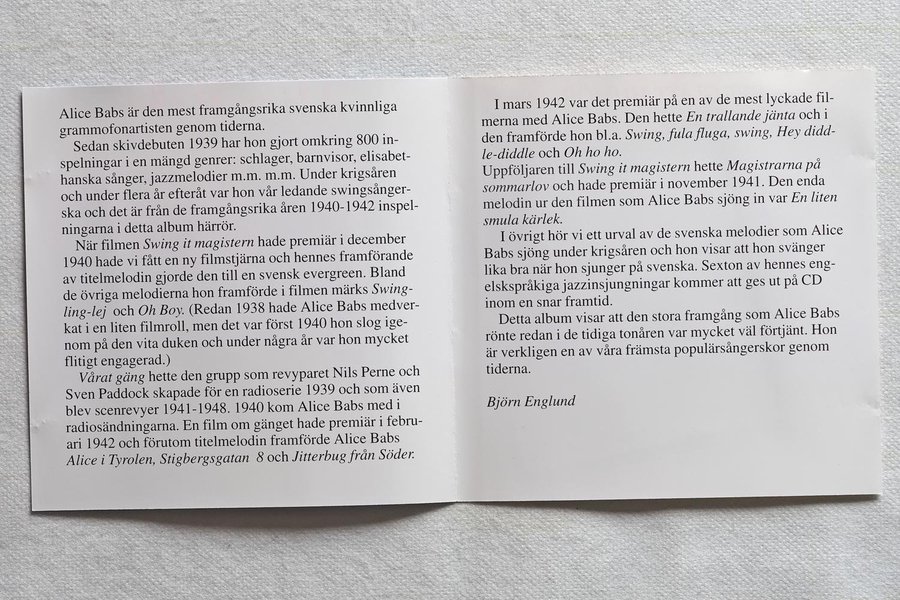 Alice Babs är den mest framgångsrika svenska kvinnliga
grammofonartisten genom tiderna.
Sedan skivdebuten 1939 har hon gjort omkring 800 in-
spelningar i en mängd genrer: schlager, barnvisor, elisabet-
hanska sånger, jazzmelodier m.m. m.m. Under krigsåren
och under flera år efteråt var hon vår ledande swingsånger-
ska och det är från de framgångsrika åren 1940-1942 inspel-
ningarna i detta album härrör.
När filmen Swing it magistern hade premiär i december
1940 hade vi fått en ny filmstjärna och hennes framförande
av titelmelodin gjorde den till en svensk evergreen. Bland
de övriga melodierna hon framförde i filmen märks Swing-
ling-lej och Oh Boy. (Redan 1938 hade Alice Babs medver-
kat i en liten filmroll, men det var först 1940 hon slog ige-
nom på den vita duken och under några år var hon mycket
flitigt engagerad.)
Vårat gäng hette den grupp som revyparet Nils Perne och
Sven Paddock skapade för en radioserie 1939 och som även
blev scenrevyer 1941-1948. 1940 kom Alice Babs med i
radiosändningarna. En film om gänget hade premiär i febru-
ari 1942 och förutom titelmelodin framförde Alice Babs
Alice i Tyrolen, Stigbergsgatan 8 och Jitterbug från Söder.
I mars 1942 var det premiär på en av de mest lyckade fil-
merna med Alice Babs. Den hette En trallande jänta och i
den framförde hon bl.a. Swing, fula fluga, swing, Hey didd-
le-diddle och Oh ho ho.
Uppföljaren till Swing it magistern hette Magistrarna på
sommarlov och hade premiär i november 1941. Den enda
melodin ur den filmen som Alice Babs sjöng in var En liten
smula kärlek.
I övrigt hör vi ett urval av de svenska melodier som Alice
Babs sjöng under krigsåren och hon visar att hon svänger
lika bra när hon sjunger på svenska. Sexton av hennes eng-
elskspråkiga jazzinsjungningar kommer att ges ut på CD
inom en snar framtid.
Detta album visar att den stora framgång som Alice Babs
rönte redan i de tidiga tonåren var mycket väl förtjänt. Hon
är verkligen en av våra främsta populärsångerskor genom
tiderna.
Björn Englund